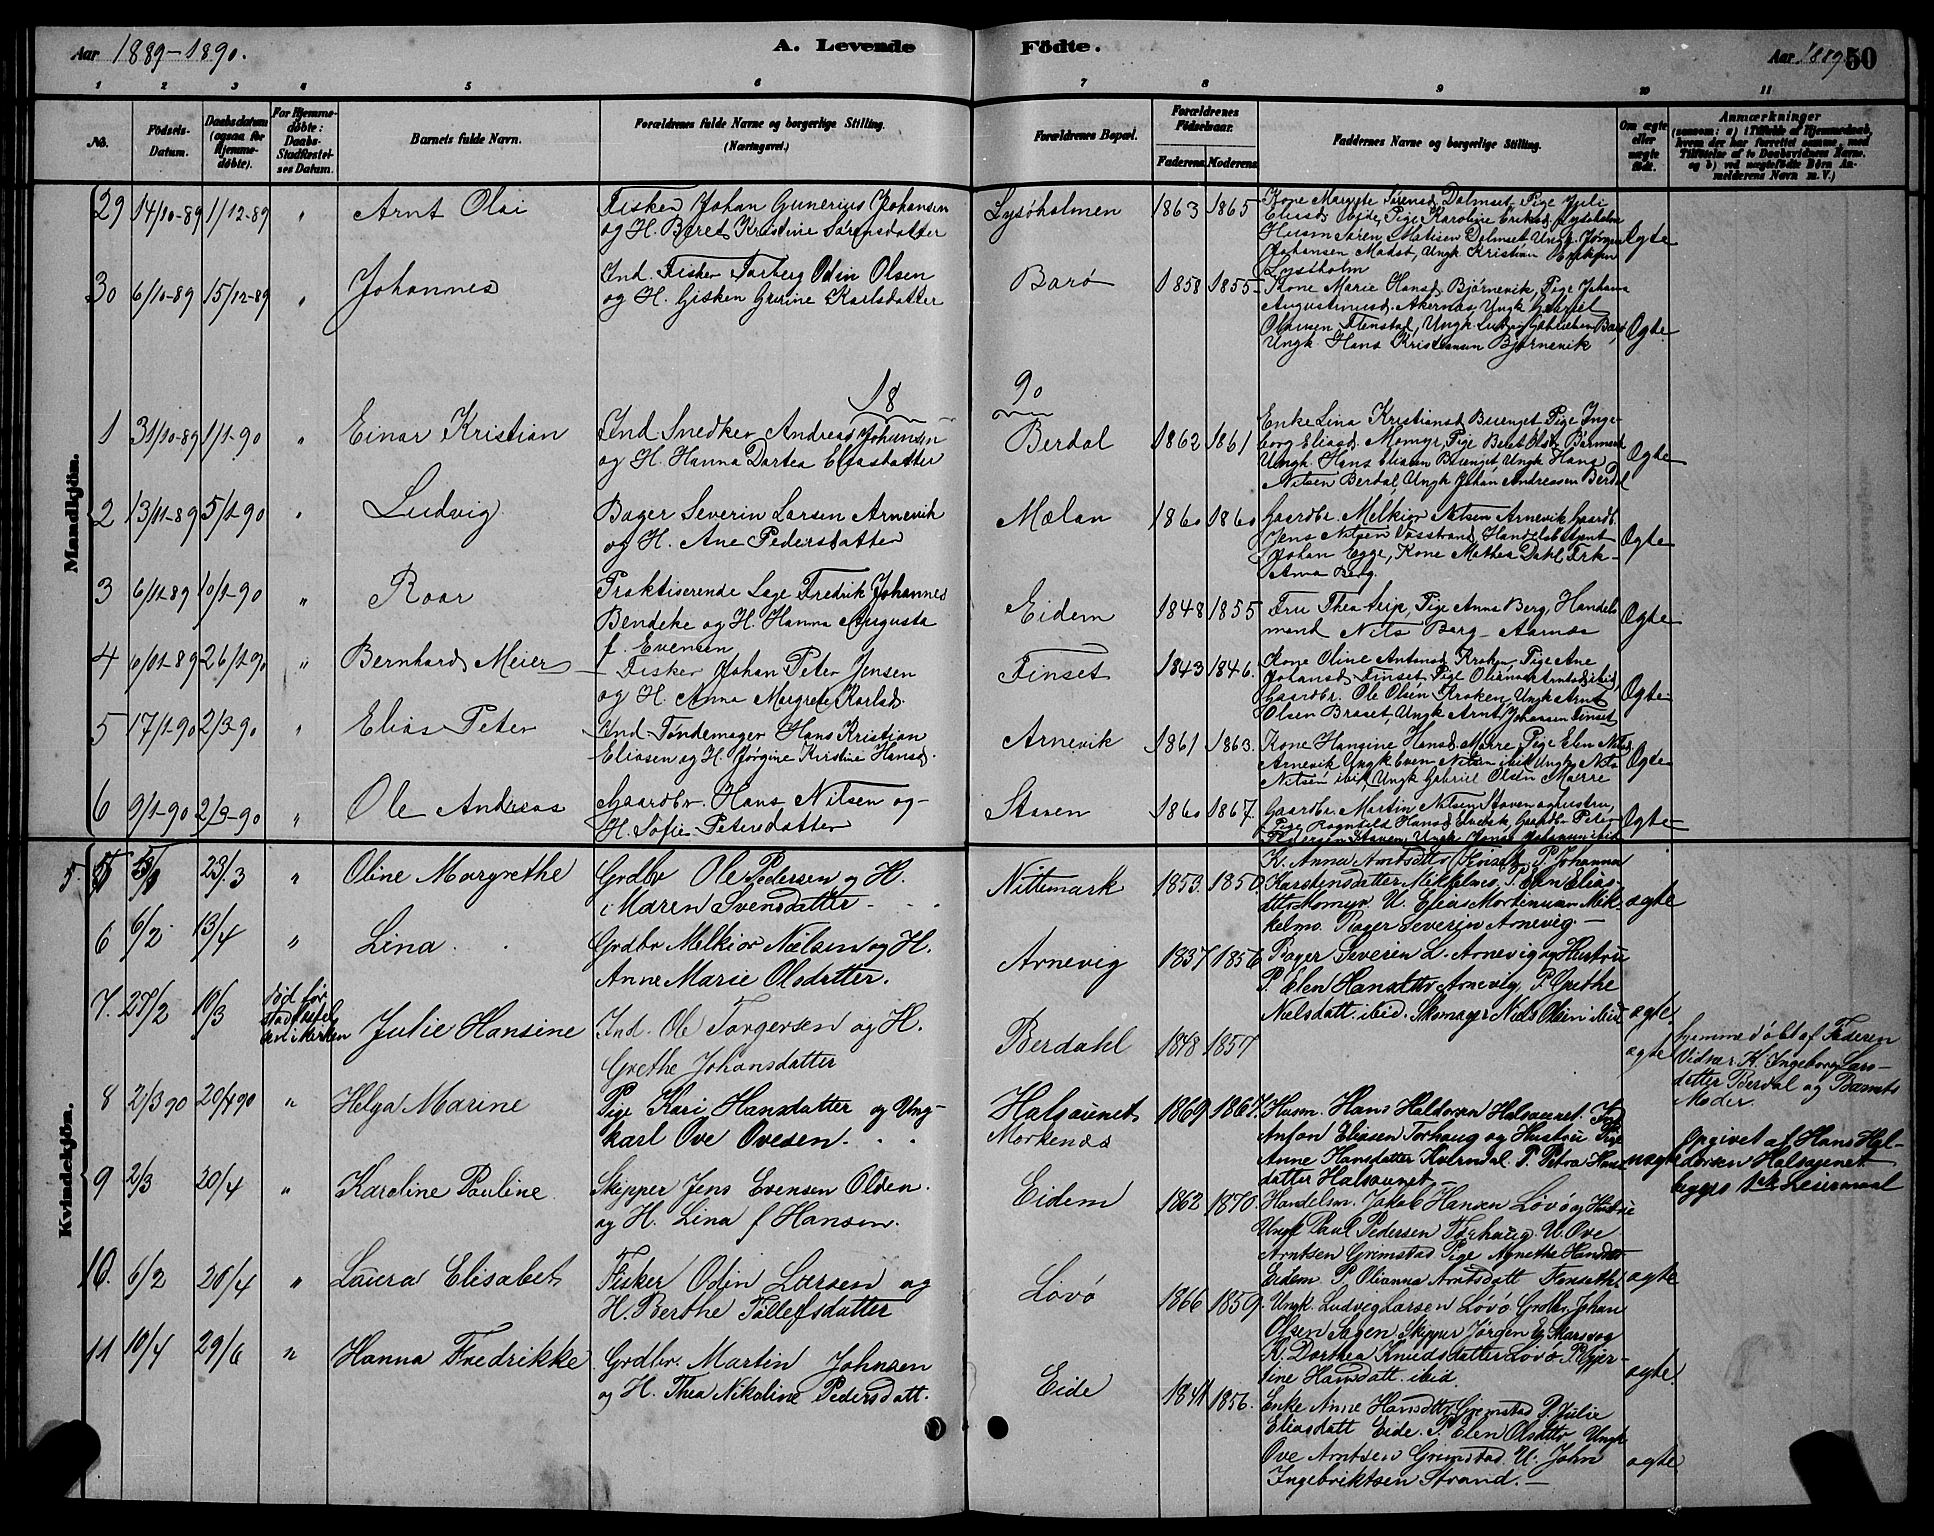 Aar 1889-1890.
A. Levende Födte.
Aar 1889
50
1 2 3 4 5 6 7 8 9 10 11
No.
Födsels-Datum.
Daabsdatum (ogsaa for Hjemmedöbte).
For Hjemmedöbte: Daabs-Stadfæstelses Datum.
Barnets fulde Navn.
Forældrenes fulde Navne og borgerlige Stilling. (Næringsvei.)
Forældrenes Bopæl.
Forældrenes Födselsaar.
Faderens Moderens
Faddernes Navne og borgerlige Stilling.
Om ægte eller uægte födt.
Anmærkninger
(saasom: a) i Tilfælde af Hjemmedaab, hvem der har forrettet samme, med Tilföielse af to Daabsvidners Navne, og b) ved uægtefödte Börn Anmelderens Navn m. V.)
Mandkjön.
29 14/10-89 1/12-89 " Arnt Olai
Fisker Johan Gunerius Johansen
og H. Beret Kristine Sørensdatter
Lysöholmen 1863 1865
Kone Margrete Dalmset, Pige
Eliasd. ibid, Pige Karoline Eriksd. Lysöholm
Husm Søren Matisen Dalmset Ungk. Jørgen
Johansen Ungk Kristian Eriksen
Lysöholm
Ægte
30 6/10-89 15/12-89 " Johannes
Ind. Fisker Torberg Odin Olsen
og H. Gisken Grurine Karlsdatter
Barö 1858 1855
Kone Marie Hansd Bjørnevik, Pige Johana
Augustinusd. Akernes, Ungk Gabriel
Olausen Flenstad, Ungk. Ludvig
Ungk. Hans Kristiansen Bjørnevik
Ægte
18 90
1 31/10-89 1/1-90 " Einar Kristian
Ind Snedker Andreas Johansen
og H. Hanna Dortea Eliasdatter
Berdal 1862 1861
Enke Lina Kristiansd. Pige Inge-
borg Eliasd. Momyr, Pige Beret Olsd.
Ungk. Hans Eliasen Ungk Hans
Nilsen Berdal, Ungk Johan Andreasen Berdal
Ægte
2 13/11-89 5/1-90 " Ludvig
Bager Severin Larsen Arnevik
og H. Ane Pedersdatter
Mælan 1860 1860
Gaardbr. Melkior Nilsen Arnevik Gaardb.
Jens Nilsen Handelsbetjent
Johan Egge, Kone Mathea Dahl, Frk.
Anna Berg.
Ægte
3 6/11-89 10/1-90 " Roar
Praktiserende Læge Fredrik Johannes
Bendeke og H. Hanna Augusta
f. Evensen
Eidem 1848 1855
Fru Thea Pige Anna Berg, Handels
mand Nils Berg - Aarnæs
Ægte
4 26/1-90 " Bernhard Meier
Fisker Johan Peter Jensen
og H. Anna Margrete Karlsd.
Finset 1843 1846.
Kone Oline Antonsd. Kroken, Pige Ane
Johansd. Finset, Pige Arntsd. ibid,
Gaardbr. Ole Olsen Kroken, Ungk Arnt
Olsen Braset, Ungk Arnt Johansen Finset
Ægte
5 17/1-90 2/3-90 " Elias Peter
Ind. Tøndemager Hans Kristian
Eliasen og H. Jørgine Kirstine Hansd.
Arnevik 1861 1863.
Kone Hansine Hansd. Mærre, Pige Elen Nilsd.
Arnevik Ungk Even Nilsen ibid Ungk. Nils
Nilsen ibid, Ungk Gabriel Olsen Mærre
Ægte
6 9/1-90 2/3-90 " Ole Andreas
Gaardbr. Hans Nilsen og
H. Sofie Petersdatter
Staven 1860 1867.
Gaardbr. Martin Nilsen Staven og Hustru
Pige Ragnhild Hansd. Gaardbr. Peter
Pedersen Staven, Ungk
Ægte
Kvindekjön.
5. 23/3 " Oline Margrethe
Grdbr Ole Pedersen og H.
Maren Svensdatter
Nittemark 1853. 1850
K. Anna Arntsdttr P. Johanna
Karstensdatter P. Elen Elias-
dttr Momyr. U. Elias Mortensen Mik-
kelmo. Bager Severin Arnevig.
ægte
6 6/2 13/4 " Lina.
Grdbr Melkior Nielsen og H.
Anne Marie Olsdatter.
Arnevig 1837 1856
Bager Severin L. Arnevig og Hustru
P. Elen Hansdttr Arnevig, P. Grethe
Nielsdatt. ibid. Skomager Niels Olsen ibid
ægte.
7. 27/2 10/3 død før stadfæstelsen i kirken Julie Hansine
Ind. Ole Torgersen og H.
Grethe Johansdatter
Berdahl 1848 1857
ægte
hjemmedöbt af Faderen
Vidner K. Ingeborg Lars-
datter Berdal og Barnets
Moder.
8 2/3 90 20/4 90 " Helga Marine
Pige Kari Hansdatter og Ung-
karl Ove Ovesen.
Halsaunet
Morkenæs 1869 1867.
Husm. Hans Haldorsen Halsaunet. Ind
Anton Eliasen Torhaug og Hustru Pige
Anne Hansdatter Kverndal. P. Petra Hans
datter Halsaunet
uægte
Opgivet af Hans Hal-
dorsen Halsaunet
begges 1ste Leiermaal
9 2/3 20/4 " Karoline Pauline
Skipper Jens Evensen Olden
og H. Lina f Hansen.
Eidem 1862 1870.
Handelsm. Jakob Hansen Lövö og Hustru
Ungk Paul Pedersen Torhaug. U. Ove
Arntsen Grimstad Pige Agnethe Hansdttr
Eidem. P. Olianna Arntsdatt Finseth
ægte
10. 6/2 26/4 " Laura Elisabet
Fisker Odin Larsen og
H. Berthe Tollefsdatter
Lövö 1866 1859.
Ungk. Ludvig Larsen Lövö. Grdbr. Johan
Olsen Sagen. Skipper Jörgen
K. Dorthea Knudsdatter Lövö. P. Gjer-
tine Hansdatt. ibid
ægte.
11 10/4 29/6 " Hanna Fredrikke
Grdbr. Martin Johnsen
og H. Thea Nikoline Pedersdatt.
Eide 1841 1856.
Enke Anne Hansdttr Grimstad P. Julie
Eliasdatt Eide. P. Elen Olsdttr Ungk
Ove Arntsen Grimstad. U. John
Ingebriktsen Strand.
ægte